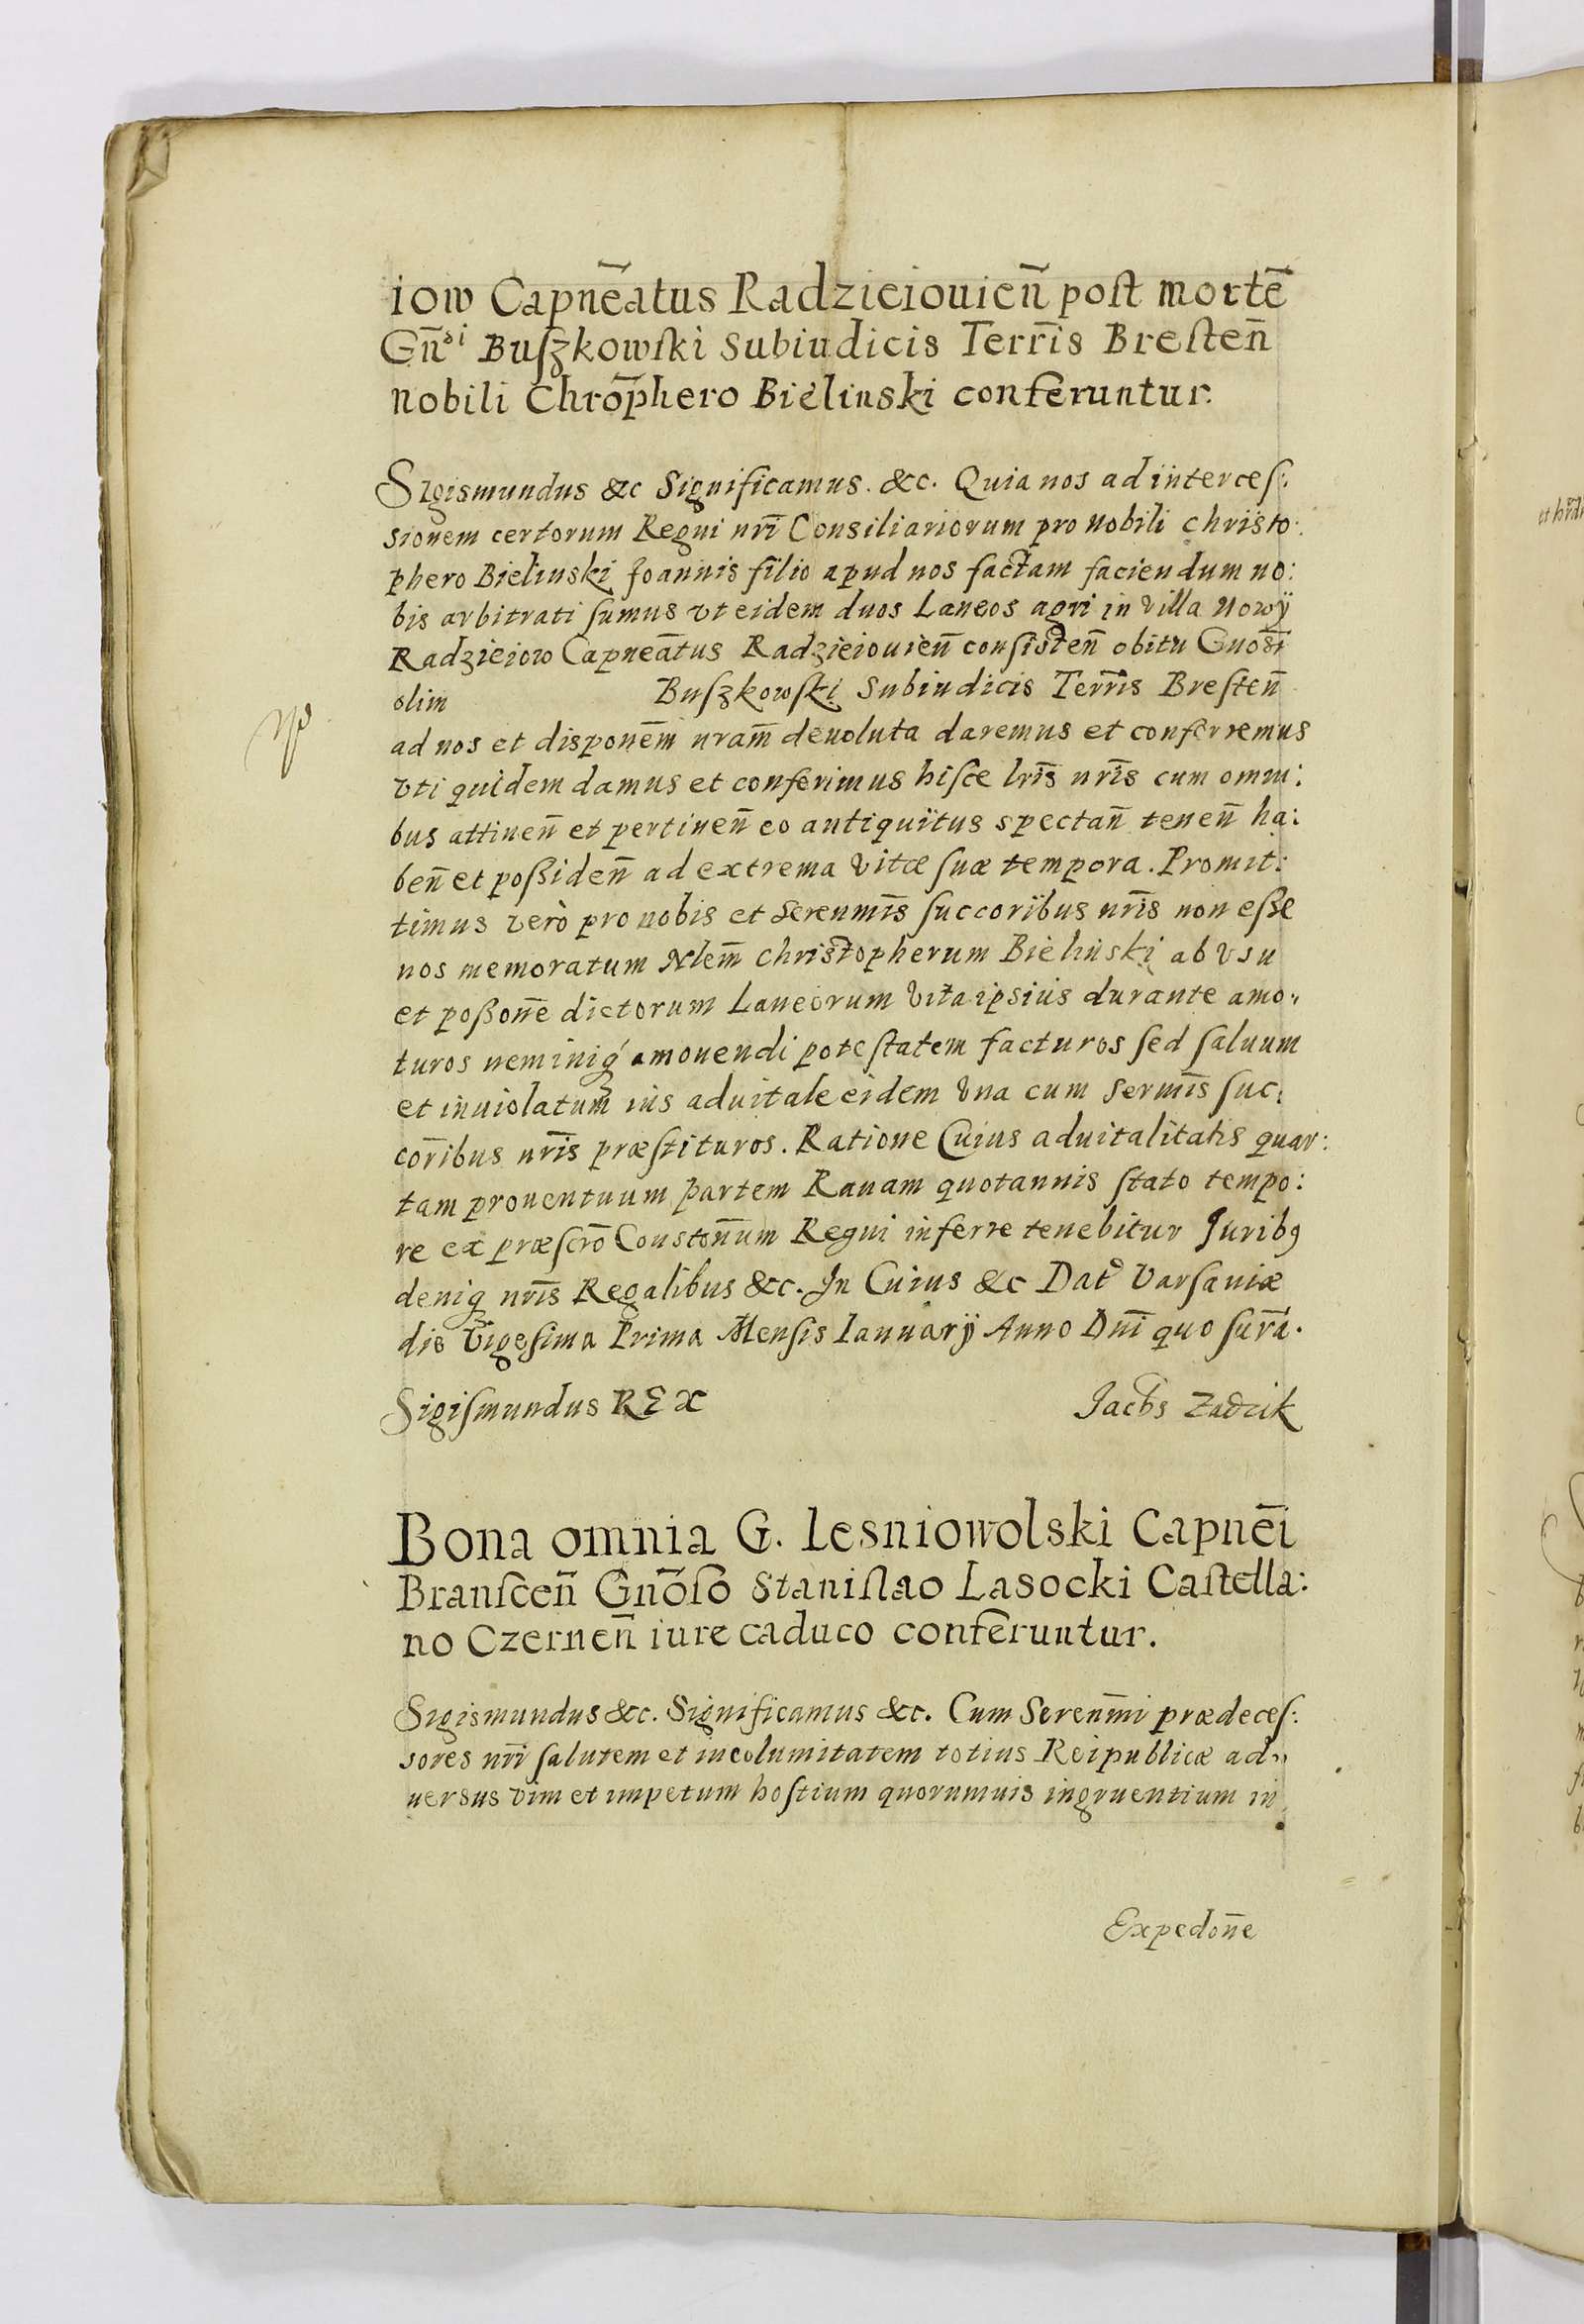 iow Capn̄eatus Radzieiouien̄ post mortē
Gn̄si Buſzkowſki Subiudicis Terrīs Breſten̄
Nobili Chrōphero Bielinski conferuntur.
Sigismundus &c Significamus. &c. Quia nos ad interceſ:
sionem certorum Regni nrī Consiliariorum pro Nobili Christo:
phero Bielinski Joannis filio apud nos factam faciendum no:
bis arbitrati sumus vt eidem duos Laneos agri in Villa Nowÿ
Radzieiow Capneātus Radzieiouien̄ conſisten̄ obitu Gnosī
olim Buſzkowſki Subiudicis Terrīs Breſten̄
ad nos et disponēm nram̄ deuoluta daremus et conferremus
vti quidem damus et conferimus hiſce lrīs nrīs cum omni:
bus attinen̄ et pertinen̄ eo antiquitus spectan̄ tenen̄ ha:
ben̄ et poßiden̄ ad extrema vitæ ſuæ tempora. Promit:
timus verò pro nobis et Serenmīs ſuccoribus nrīs non eße
nos memoratum Nlem̄ Christopherum Bielinski ab vsu
et poßon̄e dictorum Laneorum Vita ipsius durante amo„
turos neminiq́ amouendi poteſtatem facturos ſed ſaluum
et inuiolatum ius aduitale eidem Vna cum Sermīs ſuc:
cor̄ibus nrīs præſtituros. Ratione Cuius aduitalitatis quar:
tam prouentuum partem Rauam quotannis ſtato tempo:
re ex præſcrō Conston̄um Regni inferre tenebitur Juribꝯ
deniq nrīs Regalibus &c. In Cuius &c Dat° Varſauiæ
die Vigeſima Prima Menſis Ianuarÿ Anno Dnī quo ſurā.
Sigiſmundus REX Jacbs Zadzik
Bona omnia G. Lesniowolski Capnēi
Branſcen̄ Gnōſo Staniſlao Lasocki Caſtella:
no Czernen̄ iure caduco conferuntur.
Sigismundus &c. Significamus &c. Cum Seren̄mi prædeceſ:
sores nrī ſalutem et incolumitatem totius Reipublicæ ad„
uersus vim et impetum hoſtium quorumuis ingruentium in
Expedon̄e